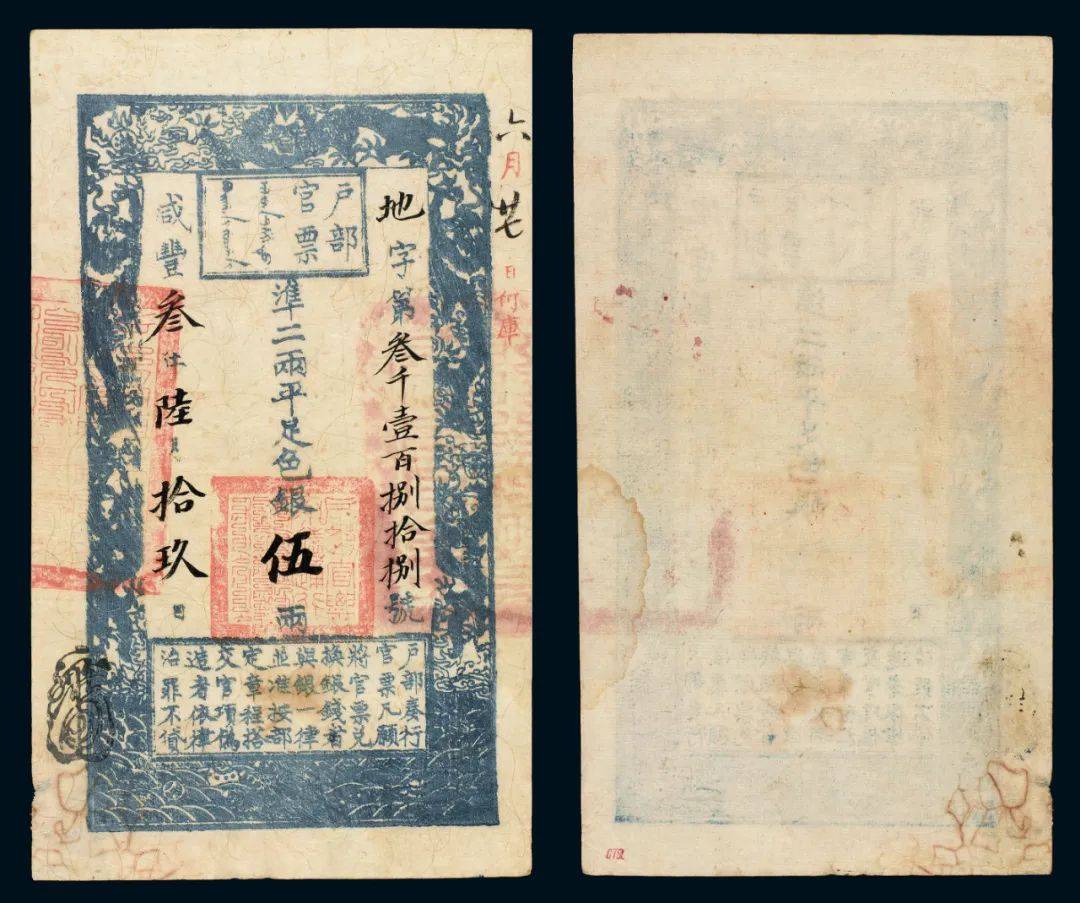 六月廿七日付庫
地字第叁千壹百捌拾捌號
戶部
官票
準二兩平足色銀伍兩
咸豐叁年陸月拾玖日
戶部奏行
官票凡願
將官票兌
換銀錢者
與銀一律
並准按部
定章程搭
交官項偽
造者依律
治罪不貸